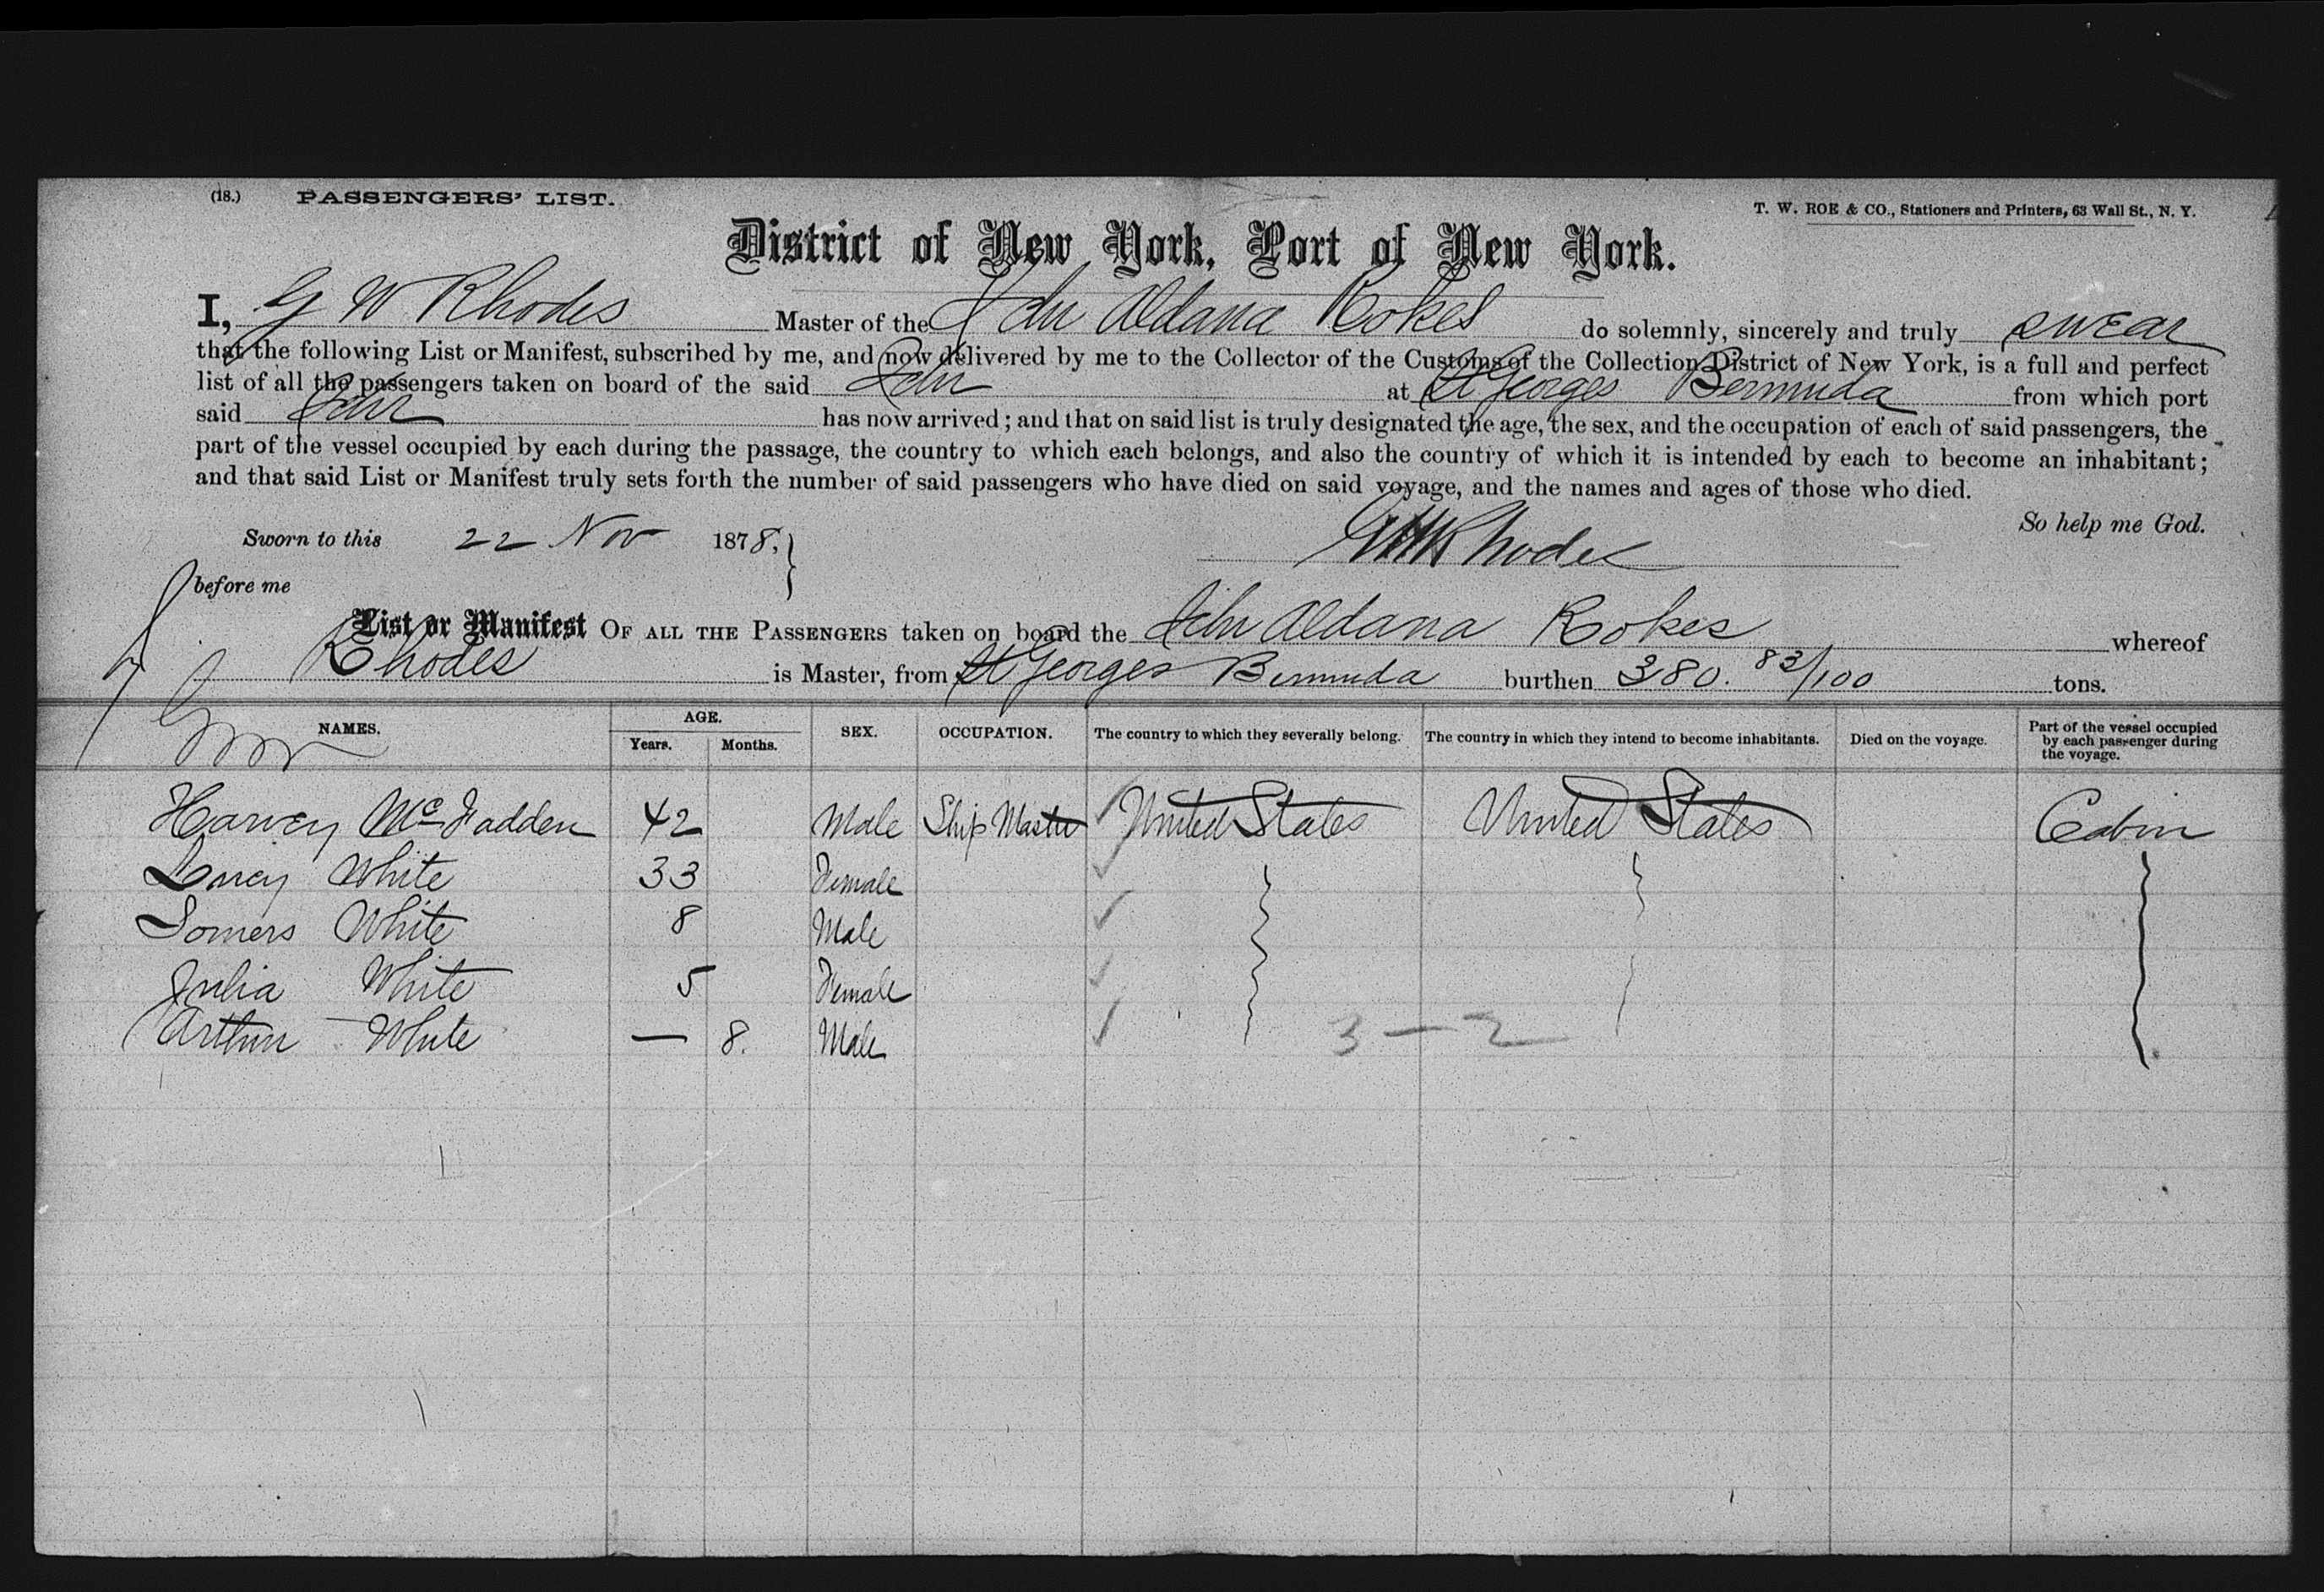 (18.) PASSENGERS' LIST.
T. W. ROE & CO., Stationers and Printers, 63 Wall St., N. Y.
District of New York, Port of New York.
I, G W Rhodes Master of the Schr Aldana Rokes do solemnly, sincerely and truly swear
that the following List or Manifest, subscribed by me, and now delivered by me to the Collector of the Customs of the Collection District of New York, is a full and perfect
list of all the passengers taken on board of the said Schr at St Georges Bermuda from which port
said Schr has now arrived; and that on said list is truly designated the age, the sex, and the occupation of each of said passengers, the
part of the vessel occupied by each during the passage, the country to which each belongs, and also the country of which it is intended by each to become an inhabitant;
and that said List or Manifest truly sets forth the number of said passengers who have died on said voyage, and the names and ages of those who died.
So help me God.
Sworn to this 22 Nov 1878,
GW Rhodes
before me
List or Manifest OF ALL THE PASSENGERS taken on board the Schr Aldana Rokes whereof
Rhodes is Master, from St Georges Bermuda burthen 380. 83/100 tons.
NAMES. AGE. Years. Months. SEX. OCCUPATION. The country to which they severally belong. The country in which they intend to become inhabitants. Died on the voyage. Part of the vessel occupied by each passenger during the voyage.
Harvey McFadden 42 Male Ship Master United States United States Cabin
Lucy White 33 Female
Somers White 8 Male
Julia White 5 Female
Arthur White — 8. Male
3 — 2